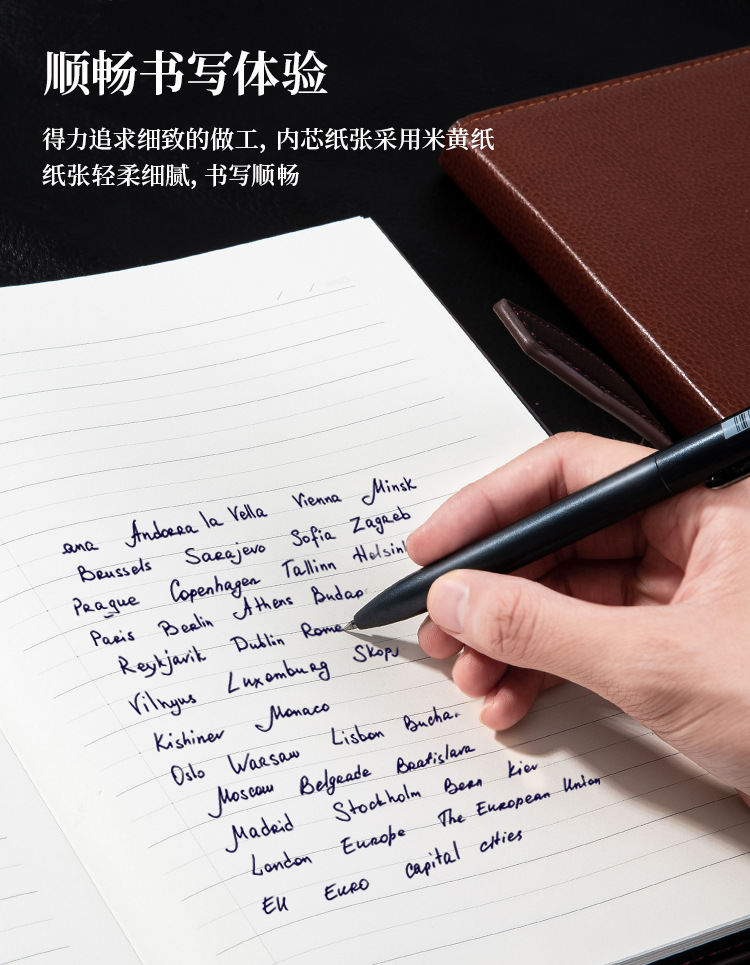 顺畅书写体验
得力追求细致的做工, 内芯纸张采用米黄纸
纸张轻柔细腻, 书写顺畅
ana Andorra la Vella Vienna Minsk
Brussels Sarajevo Sofia Zagreb
Prague Copenhagen Tallinn Helsin
Paris Berlin Athens Budap
Reykjavik Dublin Rome
Vilnyus Luxemburg Skop
Kishinev Monaco
Oslo Warsaw Lisbon Bucha
Moscow Belgrade Bratislava
Madrid Stockholm Bern Kiev
London Europe The European Union
EU Euro capital cities